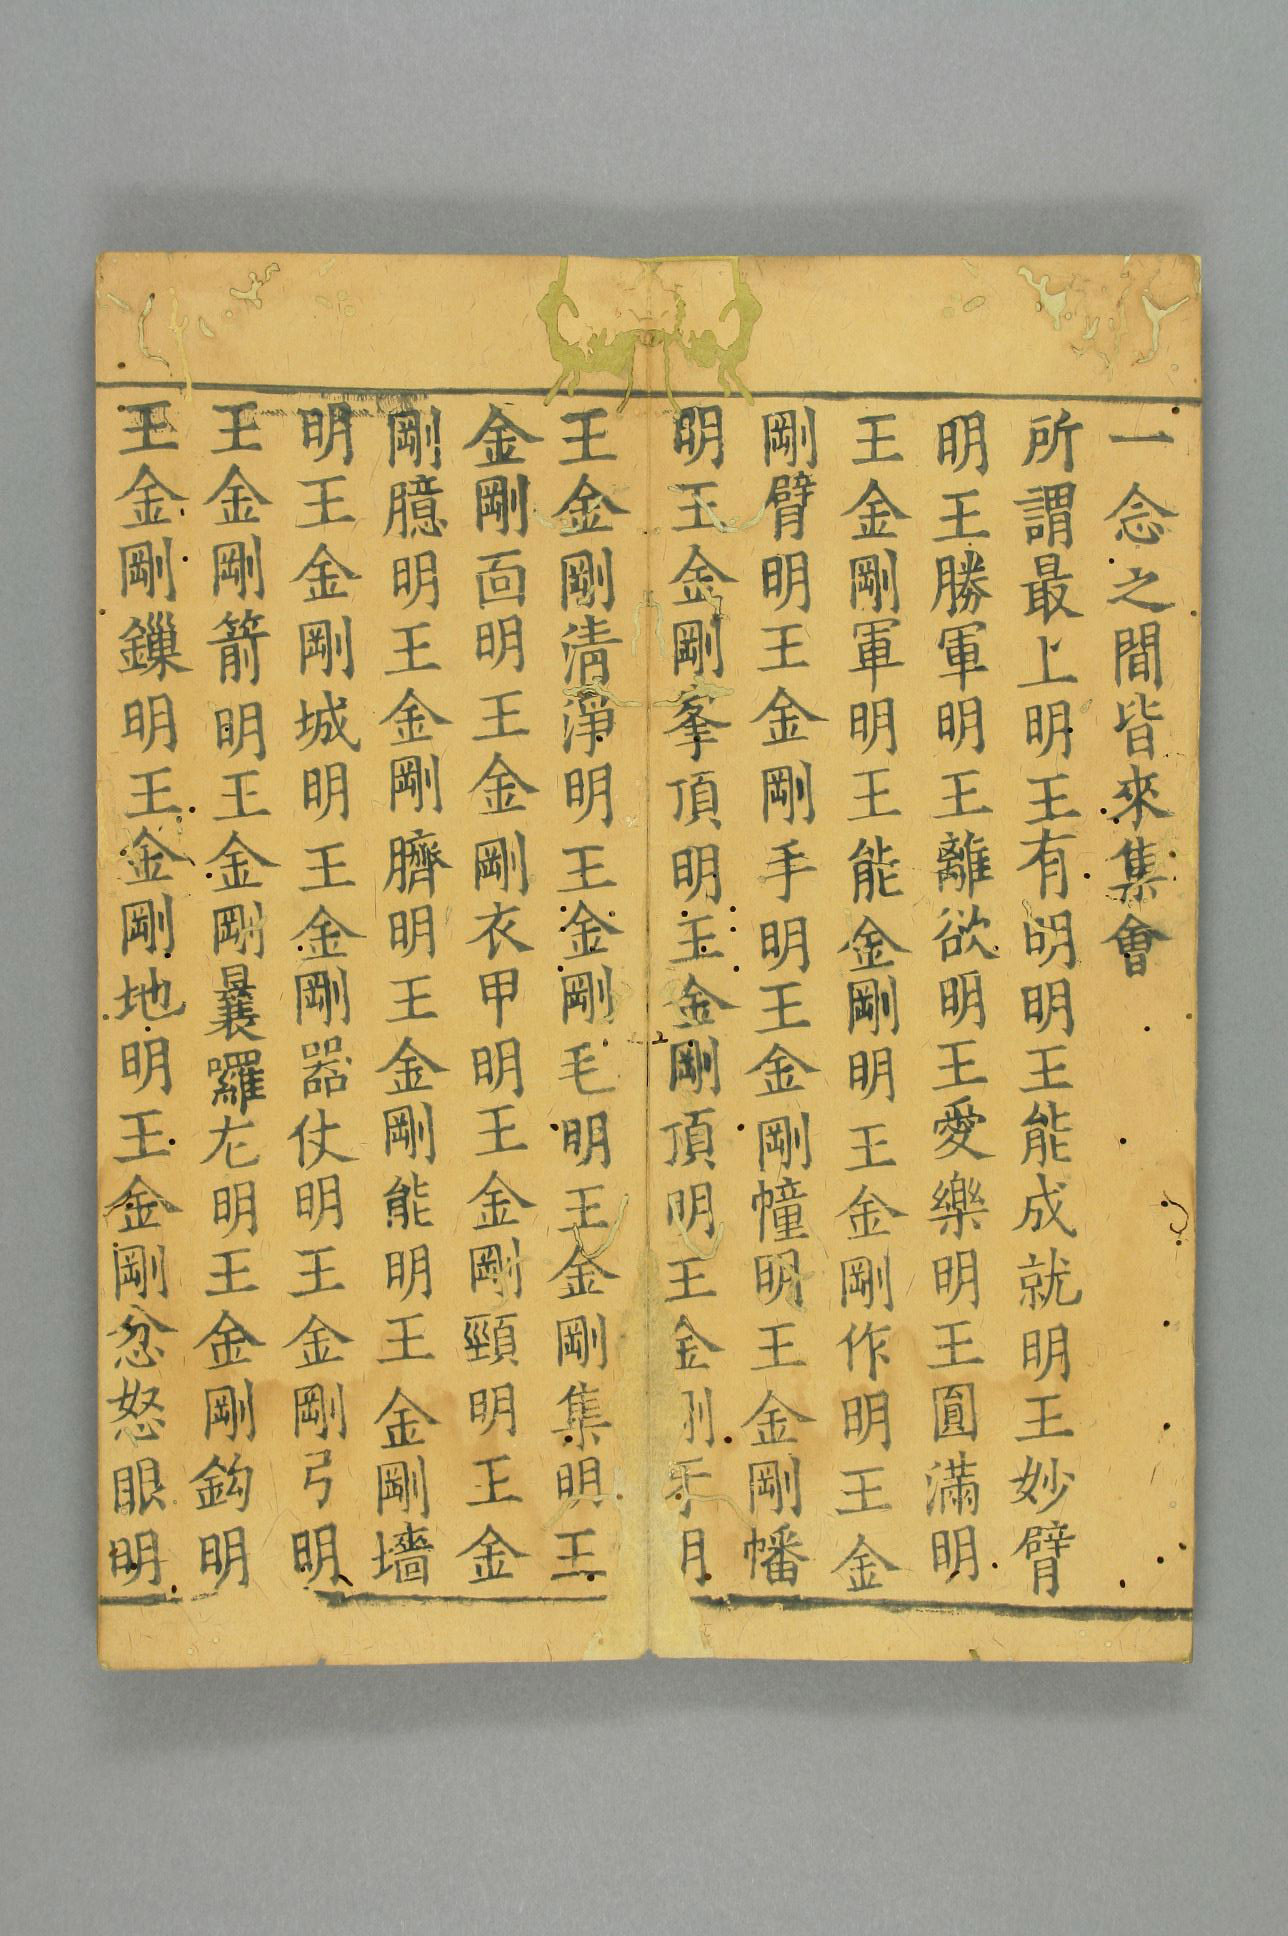 一念之間皆來集會
所謂最上明王有明明王能成就明王妙臂
明王勝軍明王離欲明王愛樂明王圓滿明
王金剛軍明王能金剛明王金剛作明王金
剛臂明王金剛手明王金剛幢明王金剛幡
明王金剛峯頂明王金剛頂明王金剛手明
王金剛清淨明王金剛毛明王金剛集明王
金剛面明王金剛衣甲明王金剛頸明王金
剛臆明王金剛臍明王金剛能明王金剛墻
明王金剛城明王金剛器仗明王金剛弓明
王金剛箭明王金剛曩囉左明王金剛鈎明
王金剛鏁明王金剛地明王金剛忿怒眼明